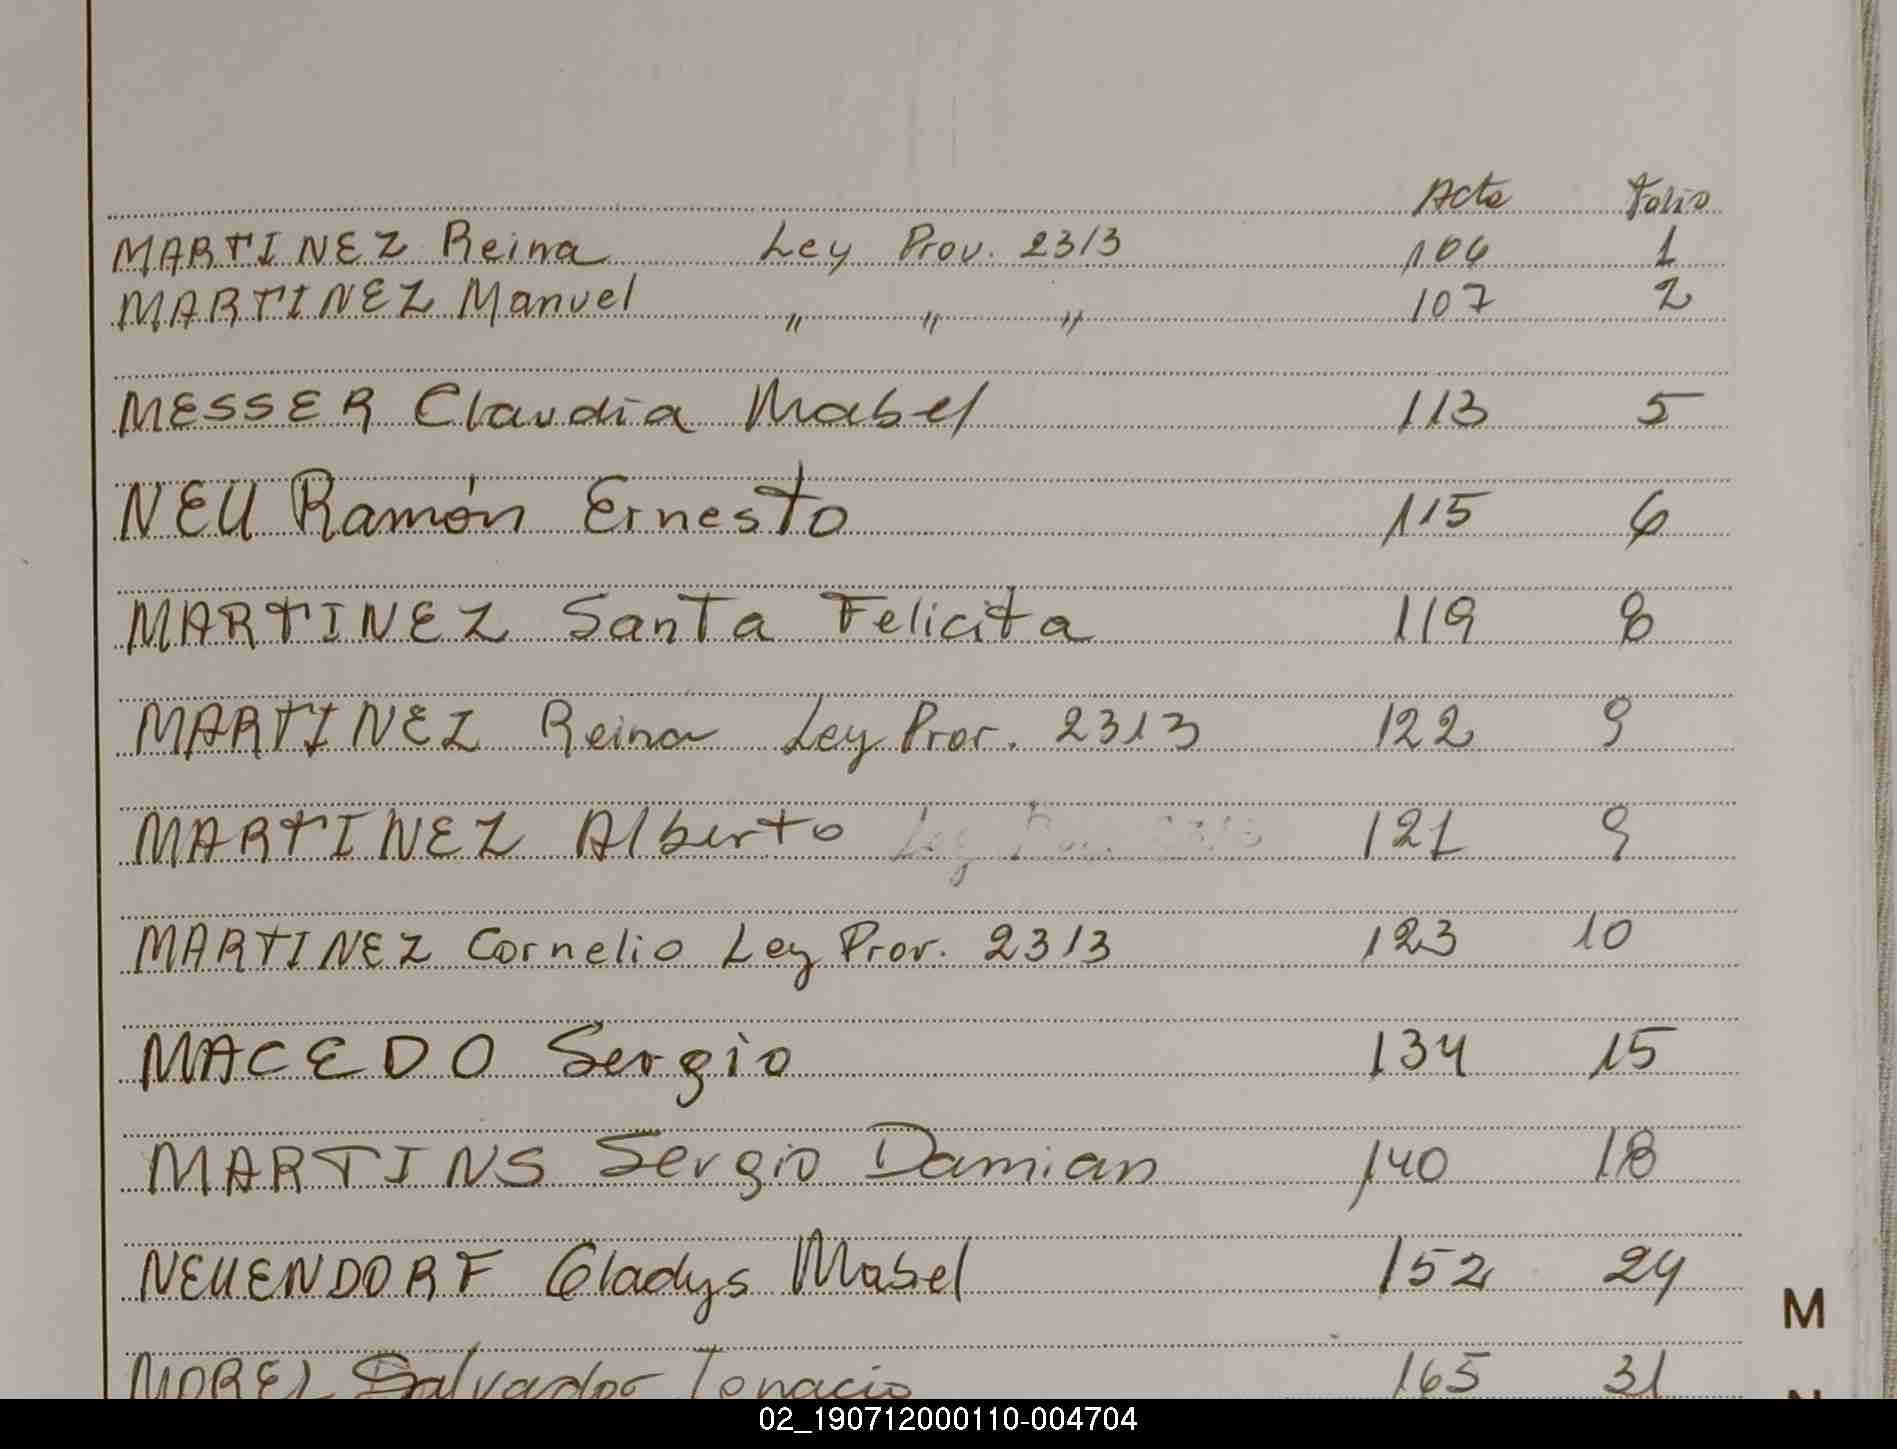 Acta Folio
MARTINEZ Reina Ley Prov. 2313 106 1
MARTINEZ Manuel " " " 107 2
MESSER Claudia Mabel 113 5
NEU Ramón Ernesto 115 6
MARTINEZ Santa Felicita 119 8
MARTINEZ Reina Ley Prov. 2313 122 9
MARTINEZ Alberto Ley Prov. 2313 121 9
MARTINEZ Cornelio Ley Prov. 2313 123 10
MACEDO Sergio 134 15
MARTINS Sergio Damian 140 18
NEUENDORF Gladys Mabel 152 24
M
MOREL Salvador Ignacio 165 31
N
02_190712000110-004704